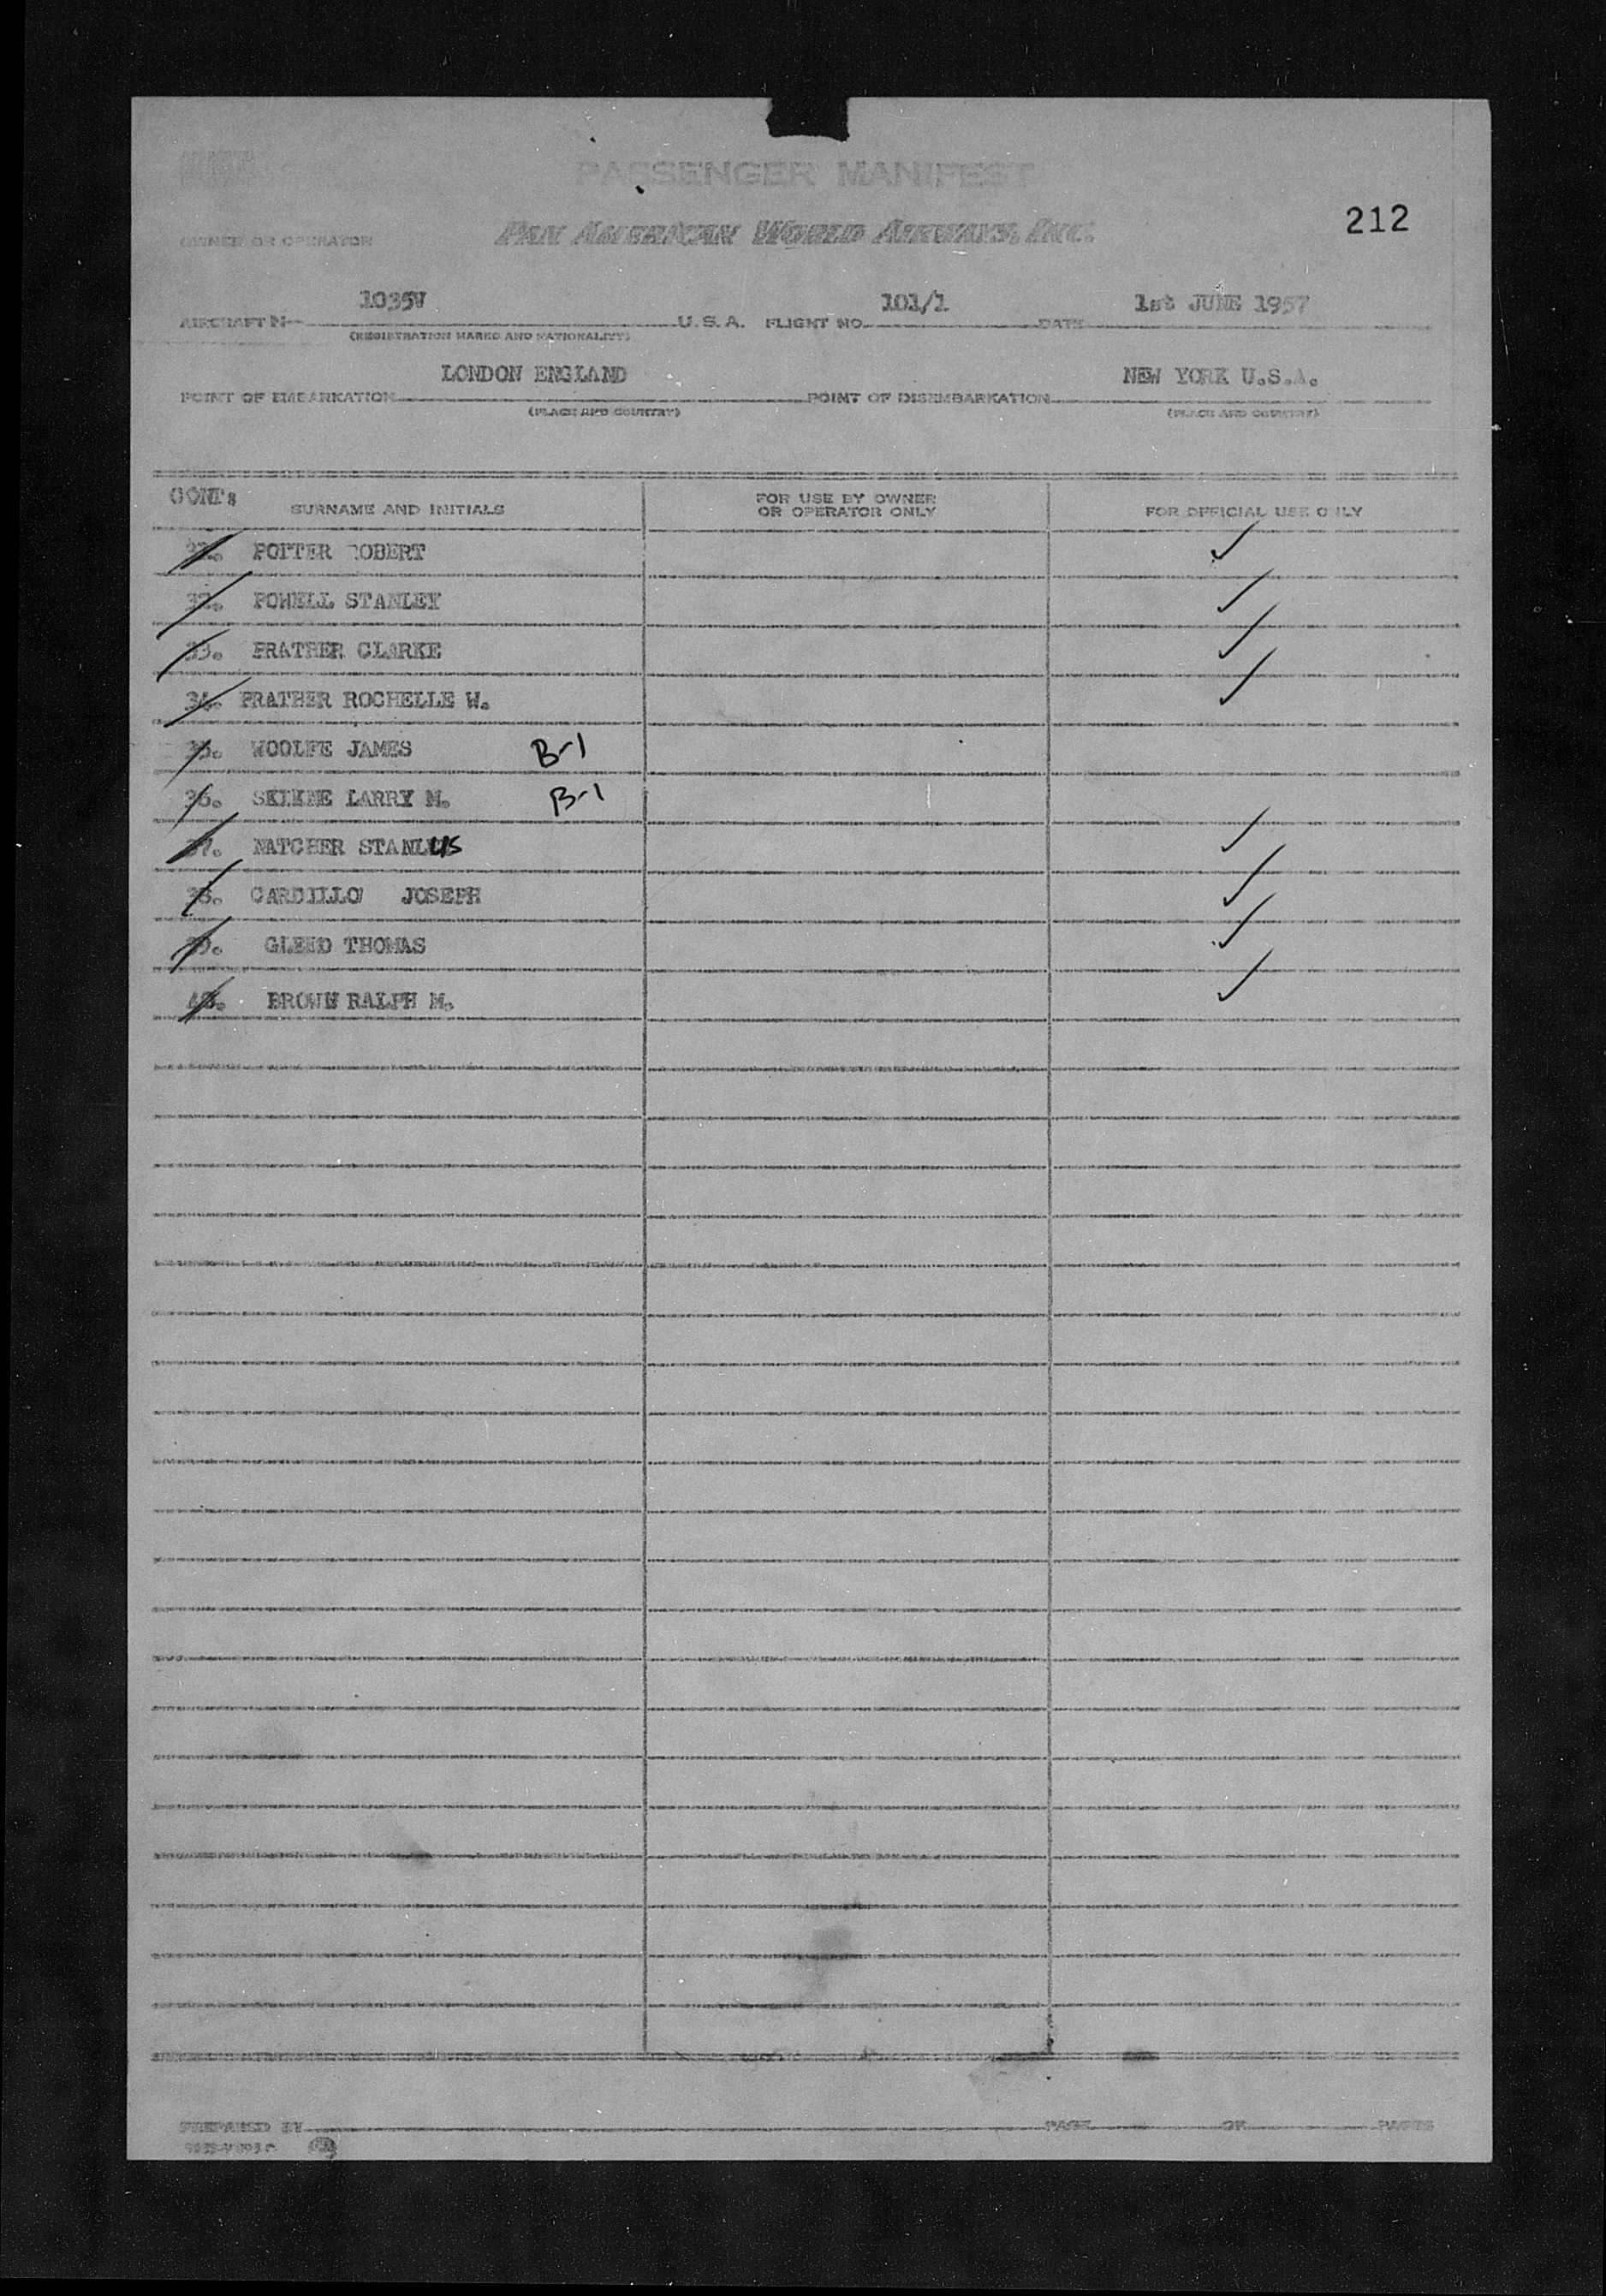 PASSENGER MANIFEST
212
OWNER OR OPERATOR PAN AMERICAN WORLD AIRWAYS, INC.
AIRCRAFT N- 1035V U. S. A. FLIGHT NO. 101/1 DATE 1st JUNE 1957
(REGISTRATION MARKS AND NATIONALITY)
POINT OF EMBARKATION LONDON ENGLAND POINT OF DISEMBARKATION NEW YORK U.S.A.
(PLACE AND COUNTRY) (PLACE AND COUNTRY)
CONT:
SURNAME AND INITIALS FOR USE BY OWNER OR OPERATOR ONLY FOR OFFICIAL USE ONLY
POTTER ROBERT ✓
32. POWELL STANLEY ✓
33. PRATHER CLARKE ✓
34. PRATHER ROCHELLE W. ✓
35. WOOLFE JAMES B-1
36. LARRY M. B-1
37. NATCHER ✓
38. CARDILLO JOSEPH ✓
39. THOMAS ✓
40. BROWN RALPH M. ✓
PREPARED BY PAGE OF PARTS